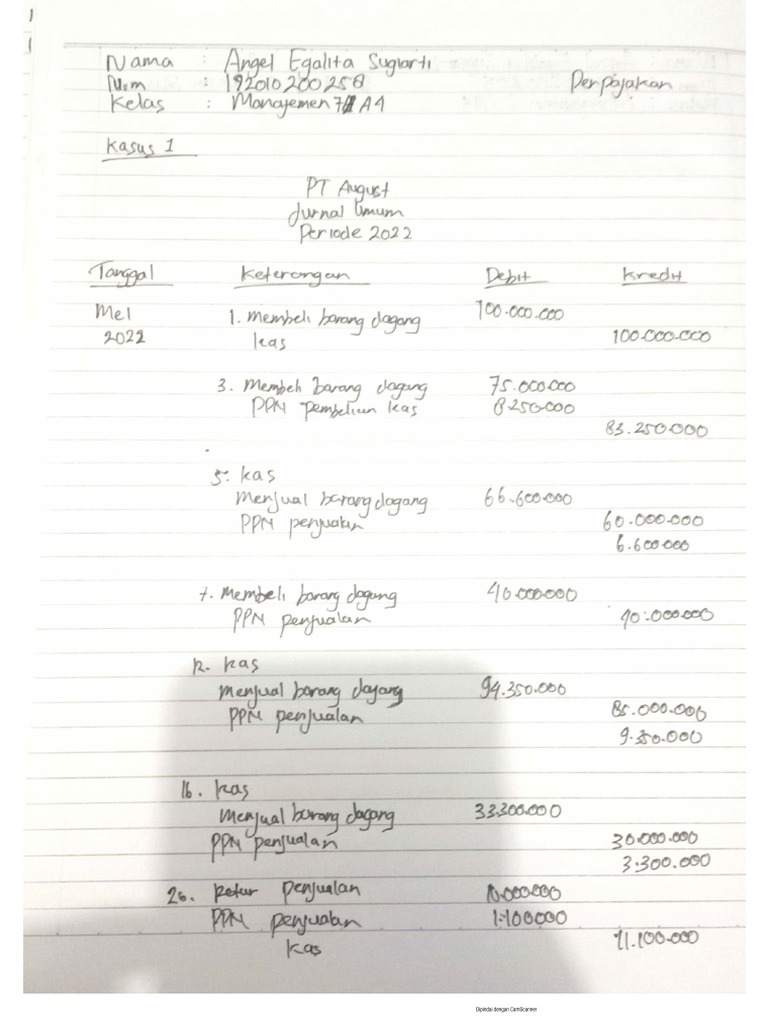 Nama : Angel Egalita Sugiarti
Nim : 192010200258 Perpajakan
Kelas : Manajemen 7 A4
Kasus 1
PT August
Jurnal Umum
Periode 2022
Tanggal Keterangan Debit Kredit
Mei 1. Membeli barang dagang 100.000.000
2022 kas 100.000.000
3. Membeli barang dagang 75.000.000
PPN pembelian kas 8.250.000
83.250.000
5. kas
Menjual barang dagang 66.600.000
PPN penjualan 60.000.000
6.600.000
7. Membeli barang dagang 40.000.000
PPN penjualan 40.000.000
kas
menjual barang dagang 94.350.000
PPN penjualan 85.000.000
9.350.000
16. kas
Menjual barang dagang 33.300.000
PPN penjualan 30.000.000
3.300.000
Retur penjualan 10.000.000
PPN penjualan 1.100000
kas 11.100.000
Dipindai dengan CamScanner